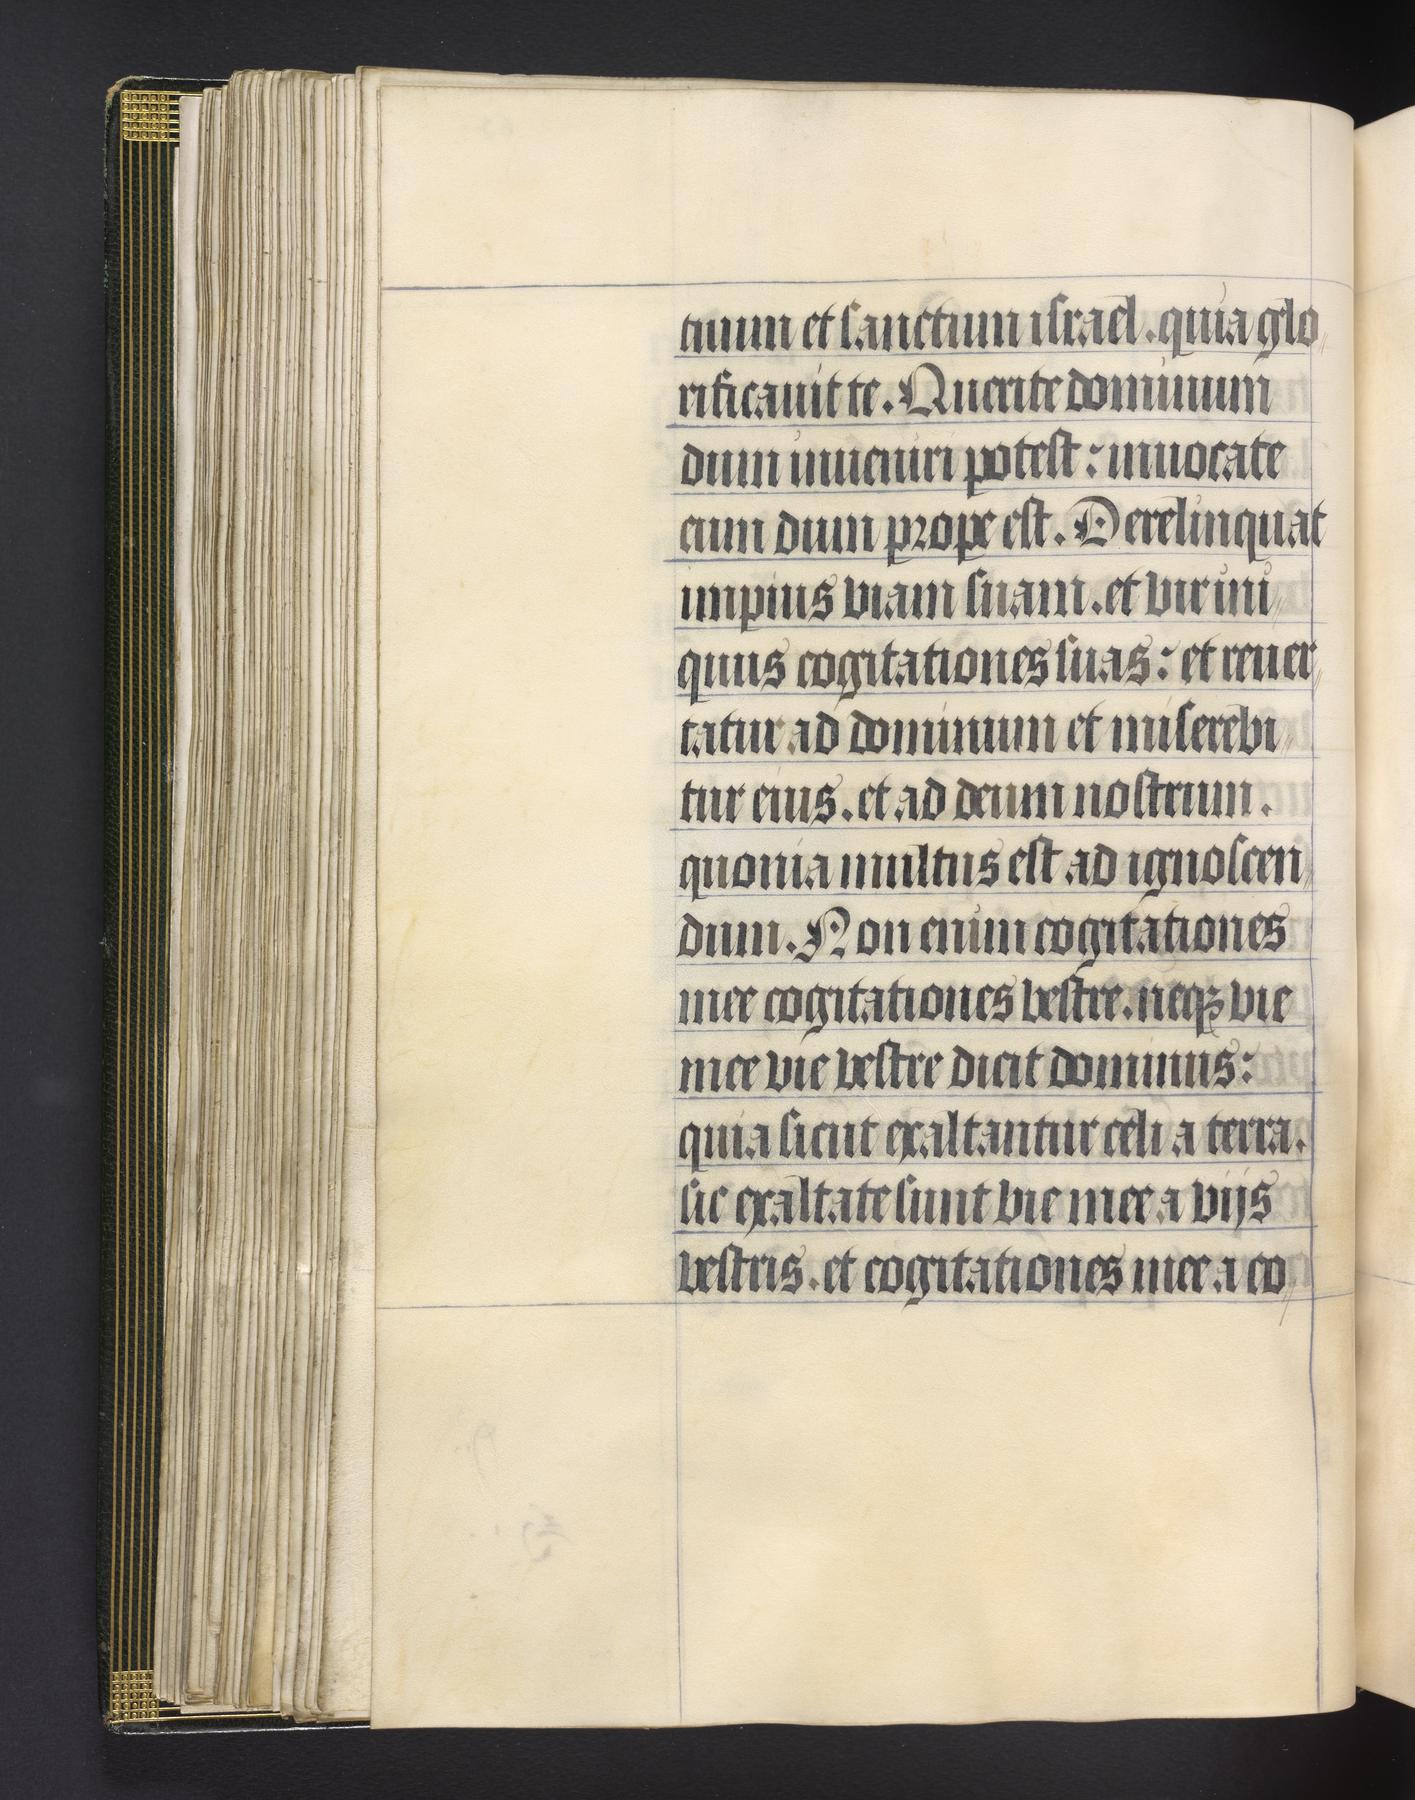 tuum et sanctum israel. quia glo
rificauit te. Querite dominum
dum inueniri potest: inuocate
eum dum prope est. Derelinquat
impius viam suam. et vir ini
quus cogitationes suas: et reuer
tatur ad dominum et miserebi
tur eius. et ad deum nostrum.
quonia multus est ad ignoscen
dum. Non enim cogitationes
mee cogitationes vestre. neqꝫ vie
mee vie vestre dicit dominus:
quia sicut exaltantur celi a terra.
sic exaltate sunt vie mee a vijs
vestris. et cogitationes mee a co